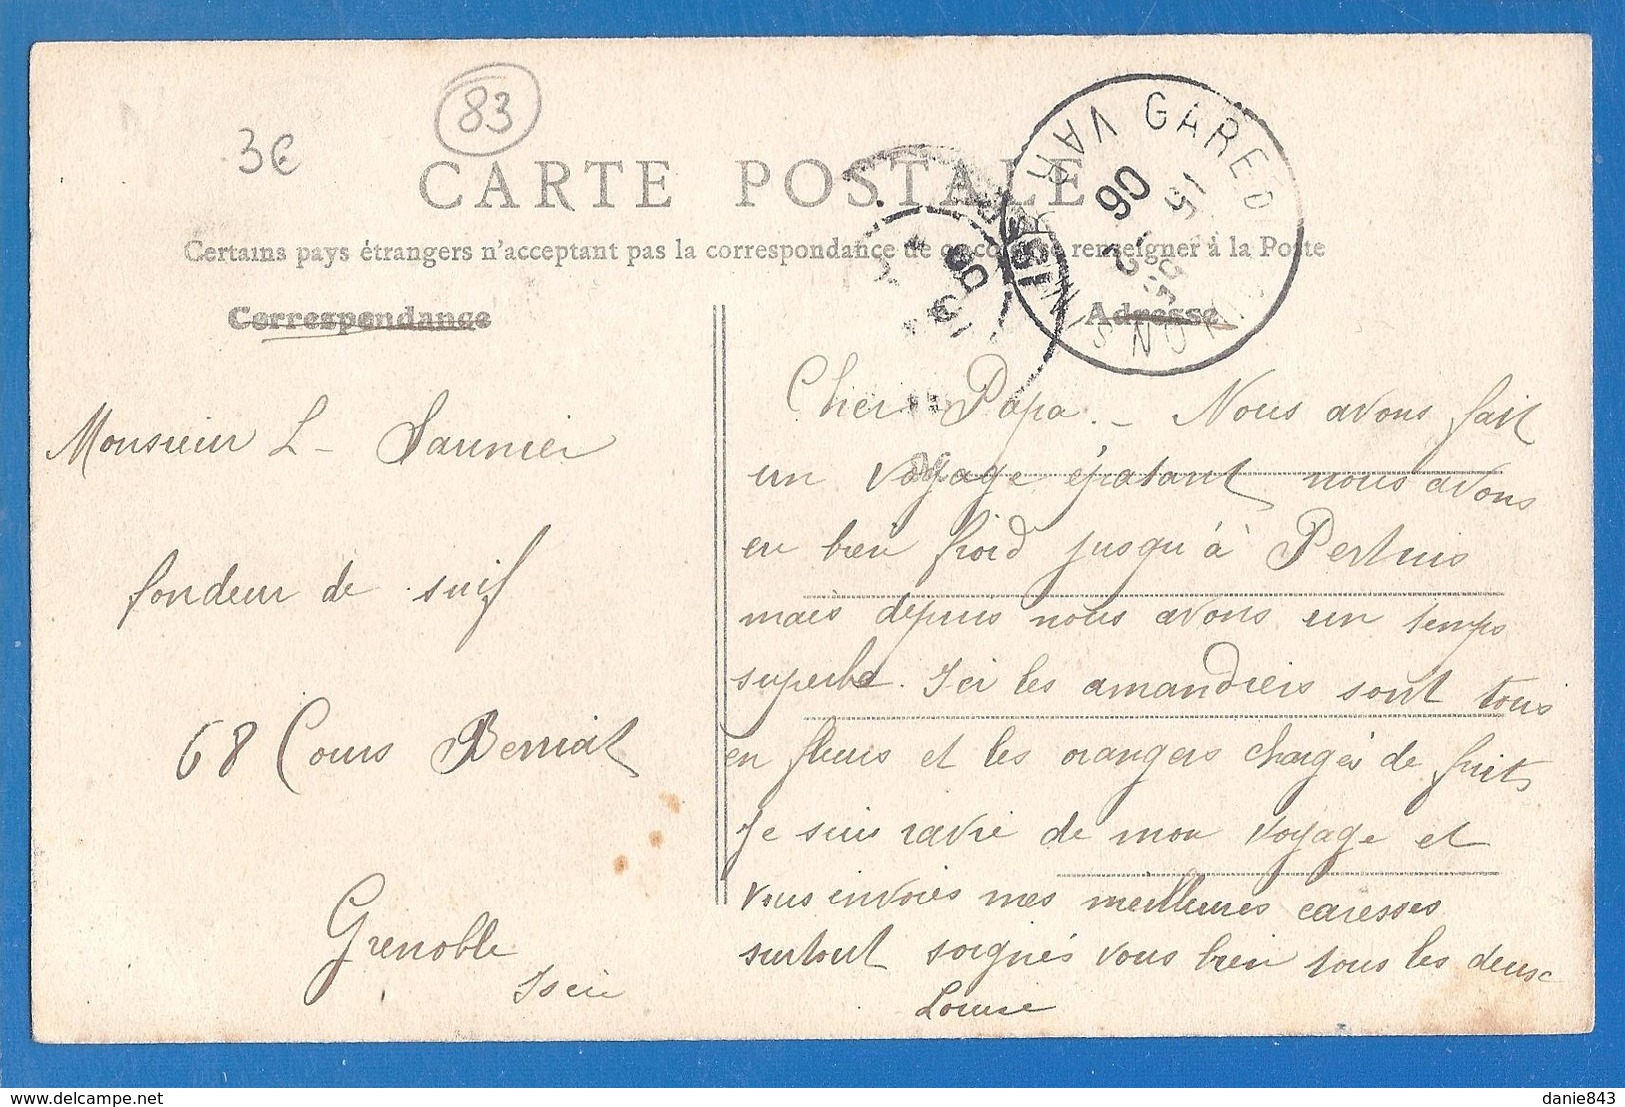 83
3€
CARTE POSTALE
Certains pays étrangers n'acceptant pas la correspondance de renseigner à la Poste
Correspondance
Adresse
GARE D
VAR
15
2
06
Monsieur L - Saunier
fondeur de suif
68 Cours Berriat
Grenoble
Isère
Cher Papa. - Nous avons fait
un voyage épatant nous avons
eu bien froid jusqu'à Pertuis
mais depuis nous avons un temps
superbe. Ici les amandiers sont tous
en fleurs et les orangers chargés de fruits
Je suis ravie de mon voyage et
vous envoies mes meilleures caresses
surtout soignés vous bien tous les deux
Louise
danie843